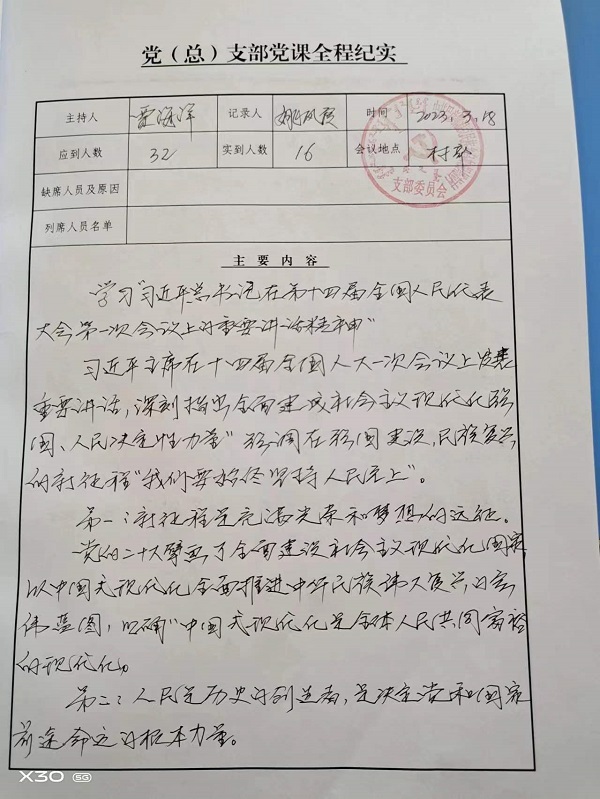 党（总）支部党课全程纪实
主持人 雷海洋 记录人 时间 2023.3.18
应到人数 32 实到人数 16 会议地点 村部
支部委员会
缺席人员及原因
列席人员名单
主要内容
学习"习近平总书记在第十四届全国人民代表
大会第一次会议上的重要讲话精神"
习近平主席在十四届全国人大一次会议上发表
重要讲话，深刻指出全面建成社会主义现代化强
国、人民决定性力量"强调在强国建设，民族复兴
的新征程"我们要始终坚持人民至上"。
第一：新征程是充满光荣和梦想的远征。
党的二十大擘画了全面建设社会主义现代化国家
以中国式现代化全面推进中华民族伟大复兴的宏
伟蓝图，明确"中国式现代化是全体人民共同富裕
的现代化。
第二：人民是历史的创造者，是决定党和国家
前途命运的根本力量。
X30 5G